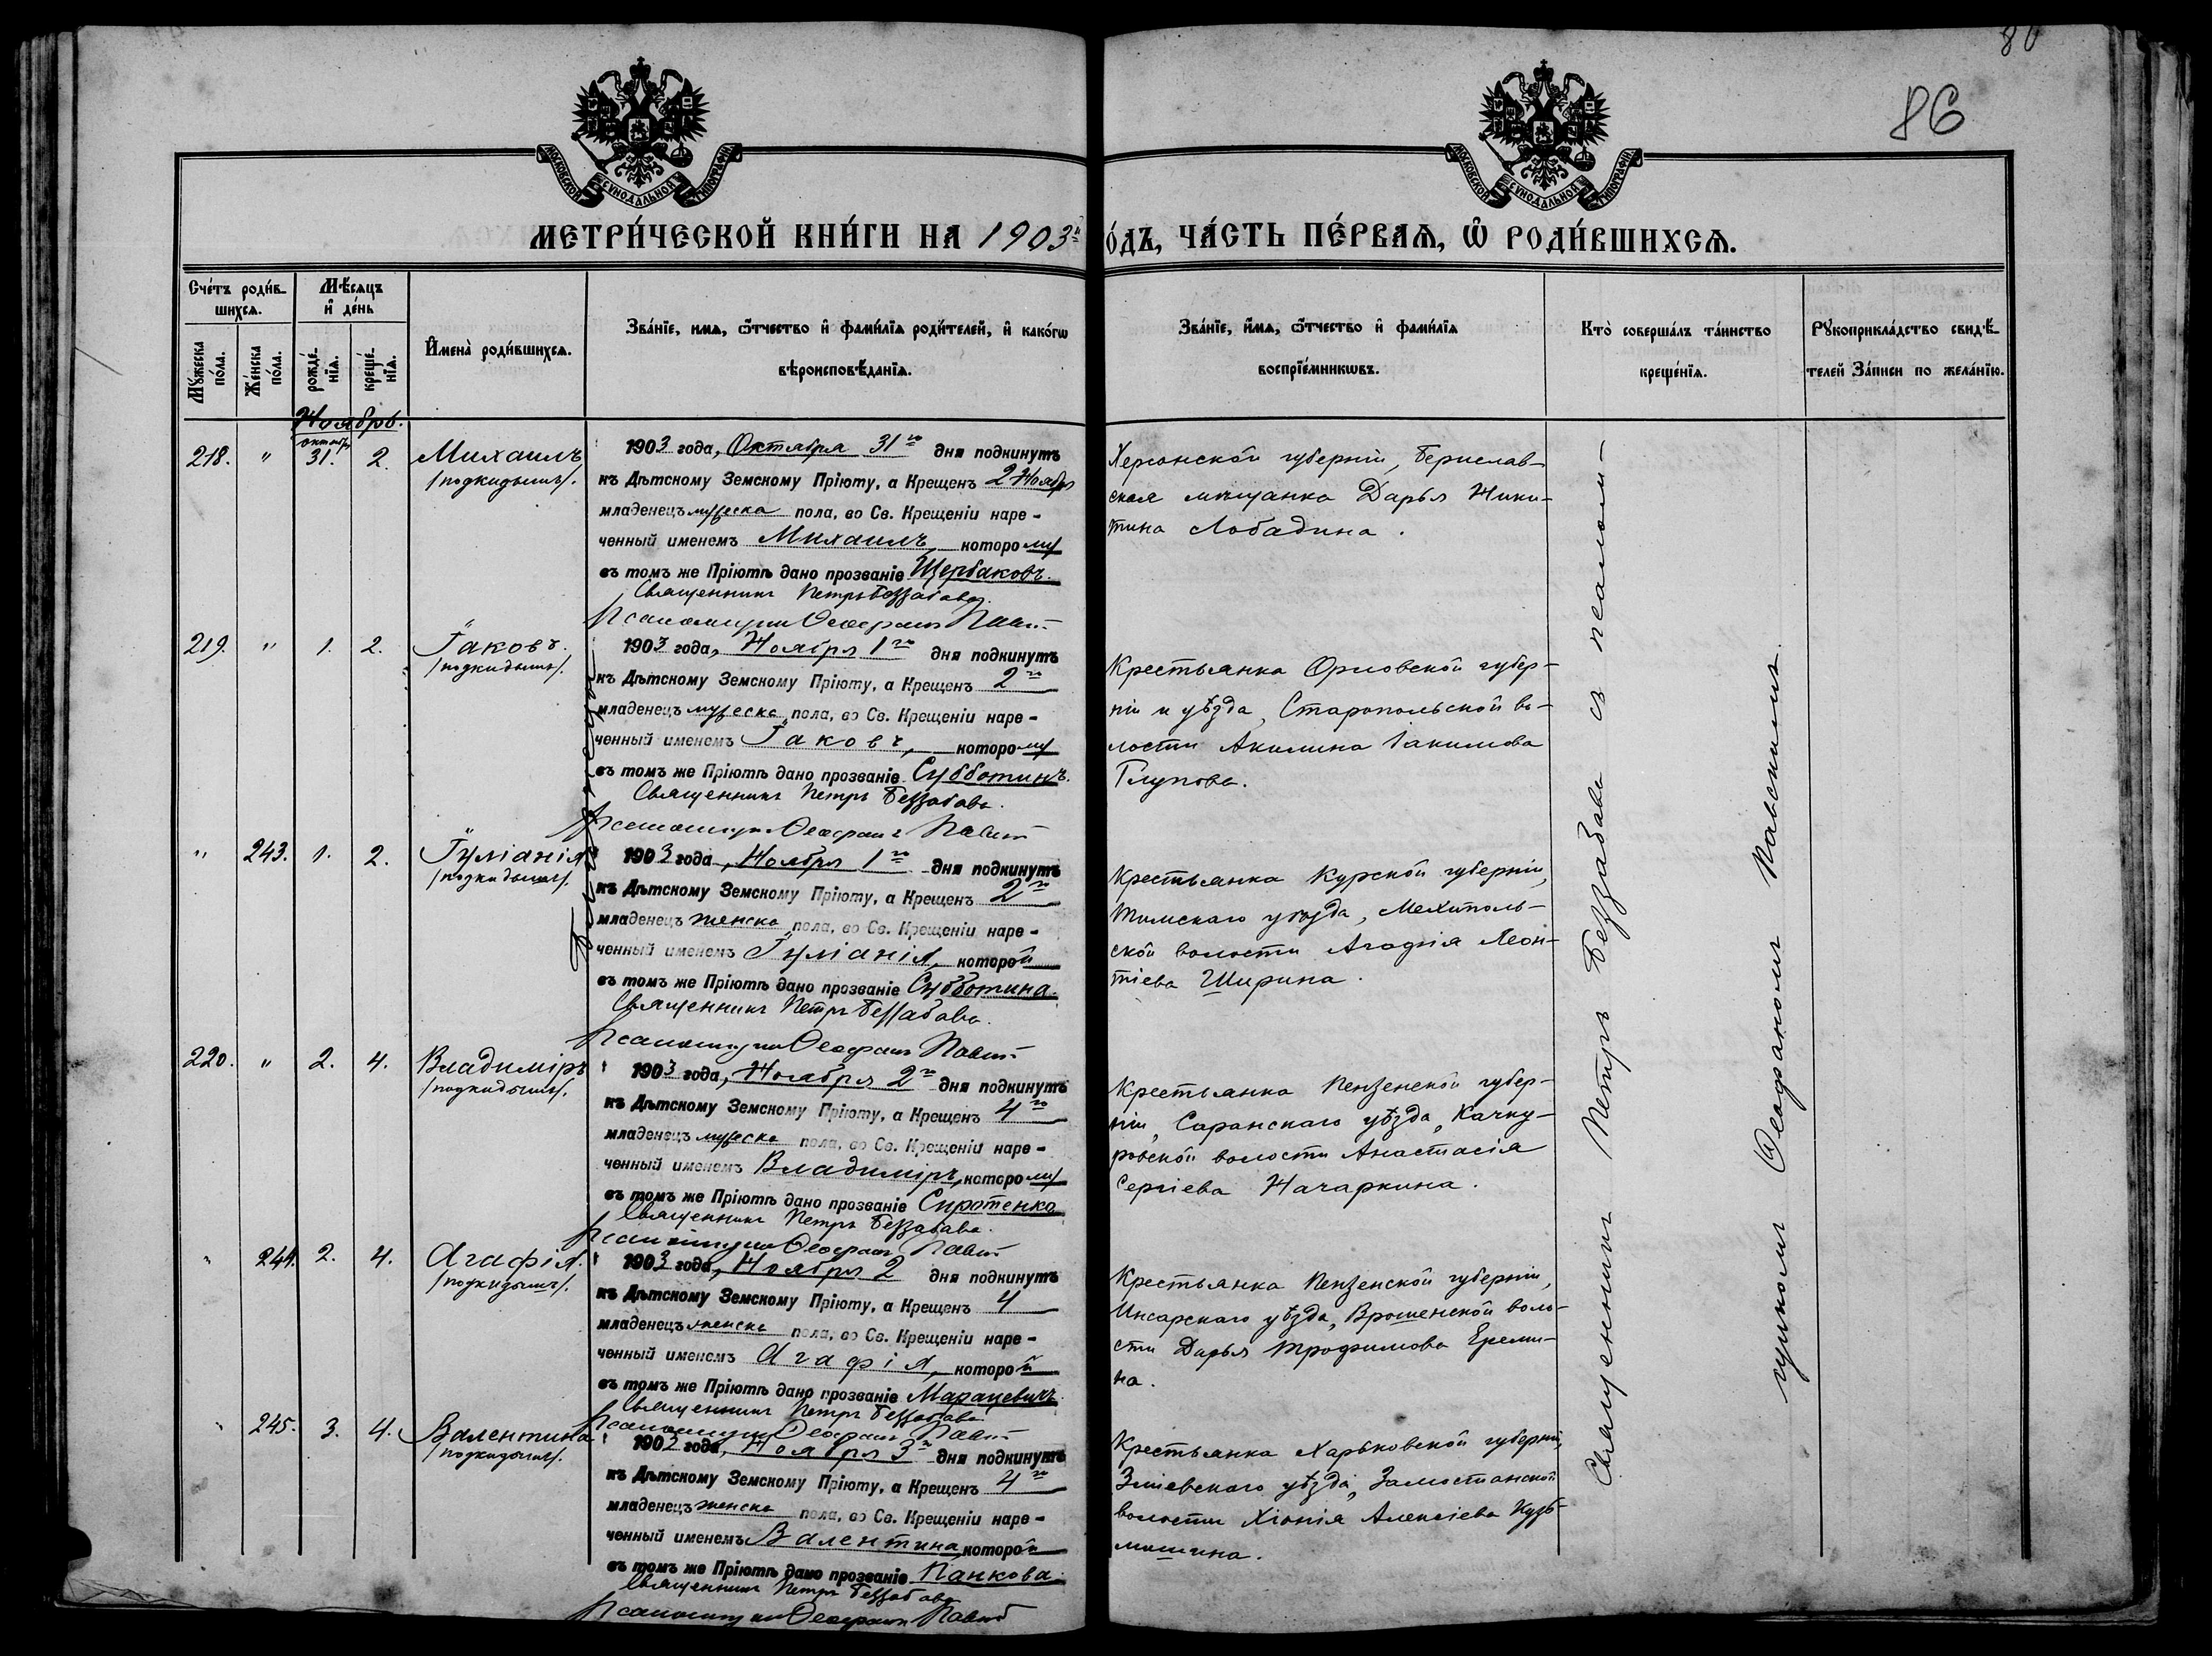 80
86
МОСКОВСКОЙ СѴНОДАЛЬНОЙ ТИПОГРАФІИ
МОСКОВСКОЙ СѴНОДАЛЬНОЙ ТИПОГРАФІИ
МЕТРИ́ЧЕСКОЙ КНИ́ГИ НА 1903й
о́дъ, ЧА́СТЬ ПЕ́РВАѦ, Ѡ҆ РОДИ́ВШИХСѦ.
Сче́тъ роди́в-
шихсѧ.
Мꙋжеска
по́ла.
Же́нска
по́ла.
Мѣ́сѧцъ
и҆ де́нь
рожде́-
нїѧ.
креще́-
нїѧ.
И҆мена̀ роди́вшихсѧ.
Зва́нїе, имѧ, ѻ҆́тчество и҆ фами́лїѧ роди́телей, и҆ како́гѡ
вѣроисповѣ́данїѧ.
Зва́нїе, и҆́мѧ, ѻ҆́тчество и҆ фами́лїѧ
воспрїе́мникѡвъ.
Кто̀ соверша́лъ та́инство
креще́нїѧ.
Рꙋкоприкла́дство свидѣ́-
телей За́писи по жела́нїю.
Ноябрь.
октяб.
218. " 31. 2. Михаилъ
/подкидышъ/.
1903 года, Октября 31го дня подкинутъ
къ Дѣтскому Земскому Пріюту, а Крещенъ 2 Ноября
младенецъ мужеска пола, во Св. Крещеніи наре-
ченный именемъ Михаилъ, которому
въ томъ же Пріютѣ дано прозваніе Щербаковъ.
Священникъ Петръ Беззабава.
Псаломщикъ Ѳеофанъ Павск
Херсонской губерніи, Берислав-
ская мѣщанка Дарья Ники-
тина Лобадина.
219. " 1. 2. Іаковъ.
/подкидышъ/.
1903 года, Ноября 1го дня подкинутъ
къ Дѣтскому Земскому Пріюту, а Крещенъ 2го
младенецъ мужеска пола, во Св. Крещеніи наре-
ченный именемъ Іаковъ, которому
въ томъ же Пріютѣ дано прозваніе Субботинъ.
Священникъ Петръ Беззабава.
Псаломщикъ Ѳеофанъ Павск
Крестьянка Орловской губер-
ніи и уѣзда, Старопольской во-
лости Акилина Іакимова
Глупова.
" 243. 1. 2. Іуліанія
/подкидышъ/.
1903 года, Ноября 1го дня подкинутъ
къ Дѣтскому Земскому Пріюту, а Крещенъ 2го
младенецъ женска пола, во Св. Крещеніи наре-
ченный именемъ Іуліанія, которой
въ томъ же Пріютѣ дано прозваніе Субботина.
Священникъ Петръ Беззабава.
Псаломщикъ Ѳеофанъ Павск
Крестьянка Курской губерніи,
Тимскаго уѣзда, Мелиполь-
ской волости Агафія Леон-
тіева Ширина.
220. " 2. 4. Владиміръ
/подкидышъ/.
1903 года, Ноября 2го дня подкинутъ
къ Дѣтскому Земскому Пріюту, а Крещенъ 4го
младенецъ мужеска пола, во Св. Крещеніи наре-
ченный именемъ Владиміръ, которому
въ томъ же Пріютѣ дано прозваніе Сиротенко
Священникъ Петръ Беззабава.
Псаломщикъ Ѳеофанъ Павск
Крестьянка Пензенской губер-
ніи, Саранскаго уѣзда, Качку-
ровской волости Анастасія
Сергіева Начаркина.
" 244. 2. 4. Агафія.
/подкидышъ/.
1903 года, Ноября 2 дня подкинутъ
къ Дѣтскому Земскому Пріюту, а Крещенъ 4
младенецъ женска пола, во Св. Крещеніи наре-
ченный именемъ Агафія, которой
въ томъ же Пріютѣ дано прозваніе Марацевичъ.
Священникъ Петръ Беззабава
Псаломщикъ Ѳеофанъ Павск
Крестьянка Пензенской губерніи,
Инсарскаго уѣзда, Врошенской воло-
сти Дарья Трофимова Ереми-
на.
" 245. 3. 4. Валентина
/подкидышъ/.
1903 года, Ноября 3го дня подкинутъ
къ Дѣтскому Земскому Пріюту, а Крещенъ 4го
младенецъ женска пола, во Св. Крещеніи наре-
ченный именемъ Валентина, которой
въ томъ же Пріютѣ дано прозваніе Панкова.
Священникъ Петръ Беззабава
Псаломщикъ Ѳеофанъ Павск
Крестьянка Харьковской губерніи,
Зміевскаго уѣзда, Замостянской
волости Хіонія Алексіева Кузь-
мишина.
Священникъ Петръ Беззабава съ псалом-
щикомъ Ѳеофаномъ Павскимъ.